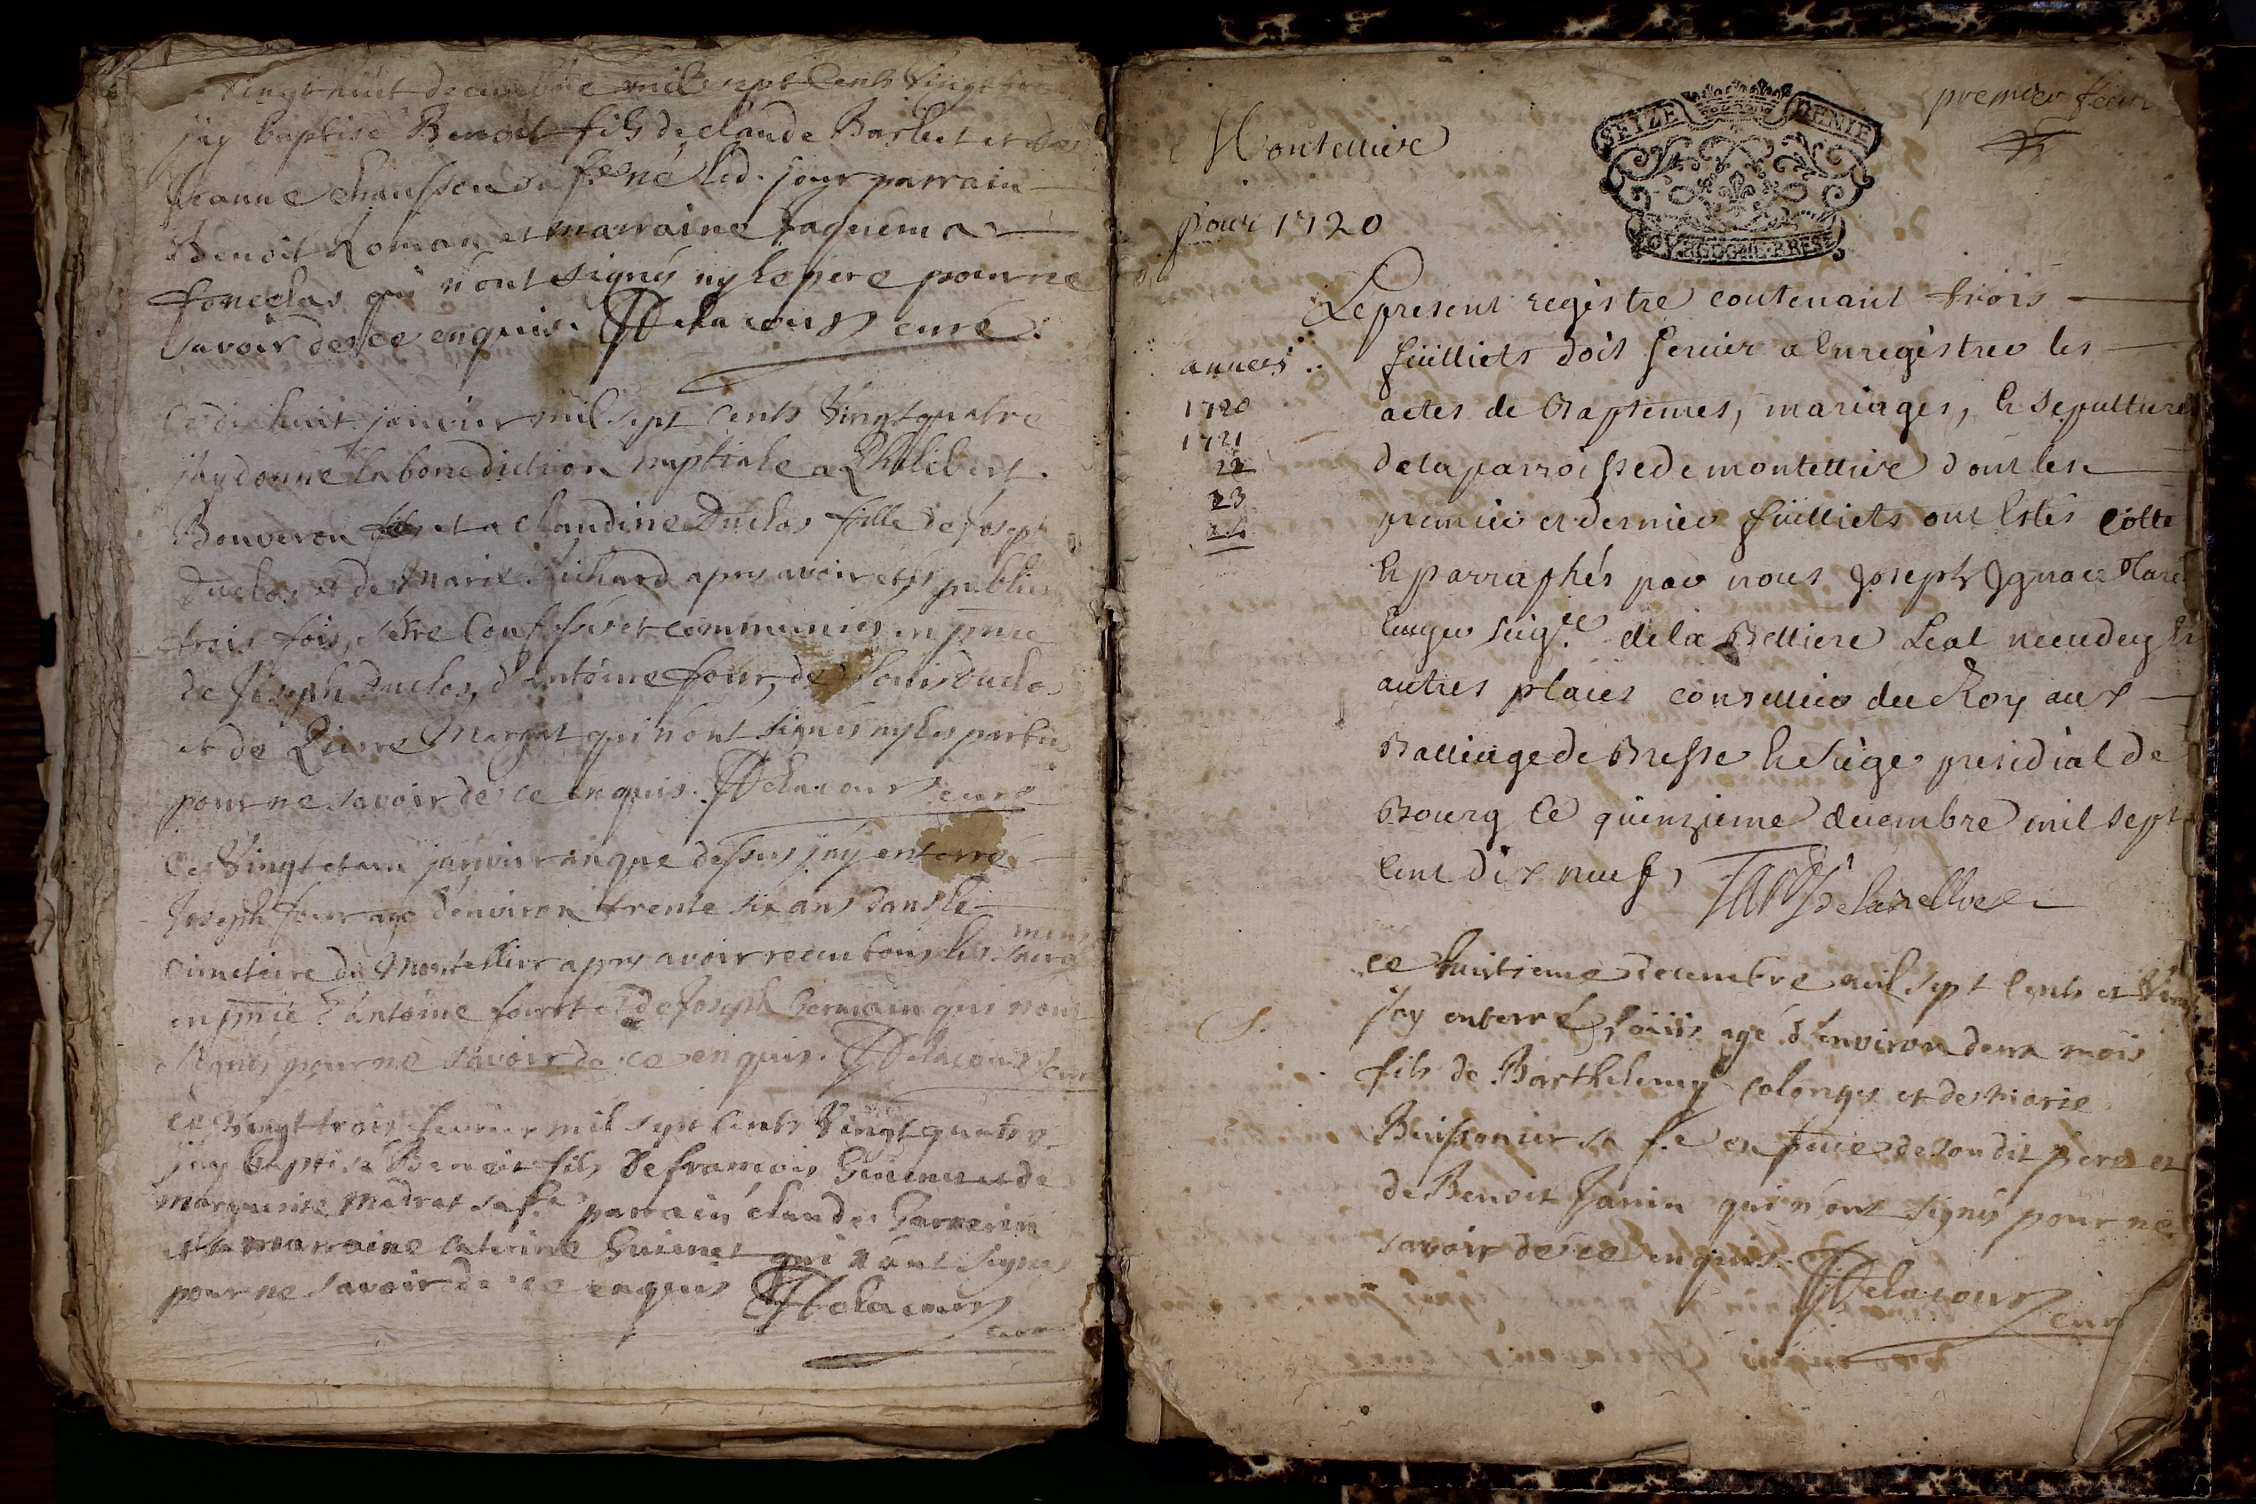 vingt huit decembre mil sept cents vingt trois
jay baptisé Benoit fils de claude Barbet et de
jeanne chausson sa fe né led. jour parrain
Benoit Roman et marraine Jaquema
fonclas qui n'ont signés ny le pere pour ne
savoir de ce enquis. Delacour curé.
Ce dixhuit janvier mil sept cents vingt quatre
jay donné la benediction nuptiale a Philibert
Bouveron et a claudine Duclos fille de Joseph
Duclos et de Marie Richard apres avoir etés publies
trois fois, s'etre confessés et communies en pnce
de Joseph Duclos, d'antoine four, de Louis Duclos
et de Pierre Margat qui n'ont signés ny les parties
pour ne savoir de ce enquis. Delacour curé
Ce vingt et un janvier an que dessus jay enterré
Joseph four agé d'environ trente six ans dans le
cimetiere du Montellier apres avoir receu tous les sacre
mens
en pnce d'antoine four et de Joseph Germain qui n'ont
signés pour ne savoir de ce enquis. Delacour curé
ce vingt trois fevrier mil sept cents vingt quatre
jay baptisé Benoit fils de francois Guienet et de
marguerite Madrat sa fe parrain claude
et marraine caterine Guienet qui n'ont signés
pour ne savoir de ce enquis Delacour
curé
premier feuil
SEIZE DENIE
BOURGOGNE BRESSE
Montellier
pour 1720
Le present registre contenant trois
annees
1720
1721
22
23
24
fuilliets doit servir a enregistrer les
actes de Baptemes, mariages, et sepulture
de la parroisse de montellier dont les
premier et dernier fuilliets ont estés cotte
et parraphés par nous Joseph Ignace
seigr de la Belliere Leal et
autres places conseiller du Roy aux
Balliage de Bresse et siege presidial de
Bourg ce quinzieme decembre mil sept
cent dix neuf,
ce huitieme decembre mil sept cents et vingt
S.
jay enterré Louis agé d'environ deux mois
fils de Barthelemy colonges et de Marie
Buissonier sa fe en pnce de son dit pere et
de Benoit Janin qui n'ont signés pour ne
savoir de ce enquis. Delacour
curé